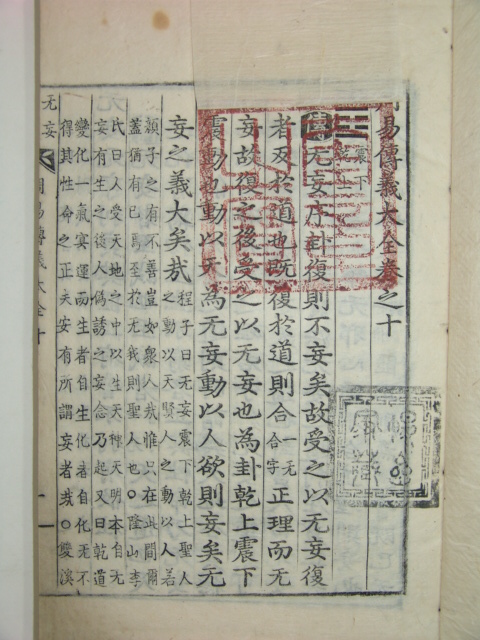 周易傳義大全卷之十
震下
乾上
无妄序卦復則不妄矣故受之以无妄復
者反於道也既復於道則合一无合字正理而无
妄故復之後受之以无妄也為卦乾上震下
震動也動以天為无妄動以人欲則妄矣无
妄之義大矣哉程子曰无妄震下乾上聖人
之動以天賢人之動以人若
顔子之有不善豈如衆人哉惟只在此間爾
蓋猶有已焉至於无我則聖人也○隆山李
氏曰人受天地之中以生天理天明本自无
妄有生之後人僞誘之妄念乃起又曰乾道
變化一氣寘運而生者自生化者自化无不
得其性命之正夫安有所謂妄者哉○雙溪
无妄
周易傳義大全十
一